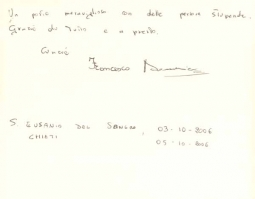 Un posto meraviglioso con delle persone stupende.
Grazie di tutto e a presto.
Francesco
S. EUSANIO DEL SANGRO, 03-10-2006
CHIETI 03-10-2006